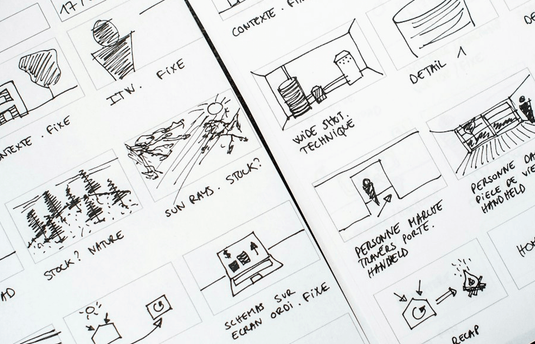 17
ITW. FIXE
CONTEXTE. FIXE
SUN RAYS. STOCK?
STOCK? NATURE
AD
$
SCHEMAS SUR
ECRAN ORDI. FIXE
CONTEXTE. FIX
DETAIL 1
DE
WIDE SHOT.
TECHNIQUE
PERSONNE DA
PIECE DE VIE
HANDHELD
PERSONNE MARCHE
TRAVERS PORTE.
HANDHELD
HO
RECAP